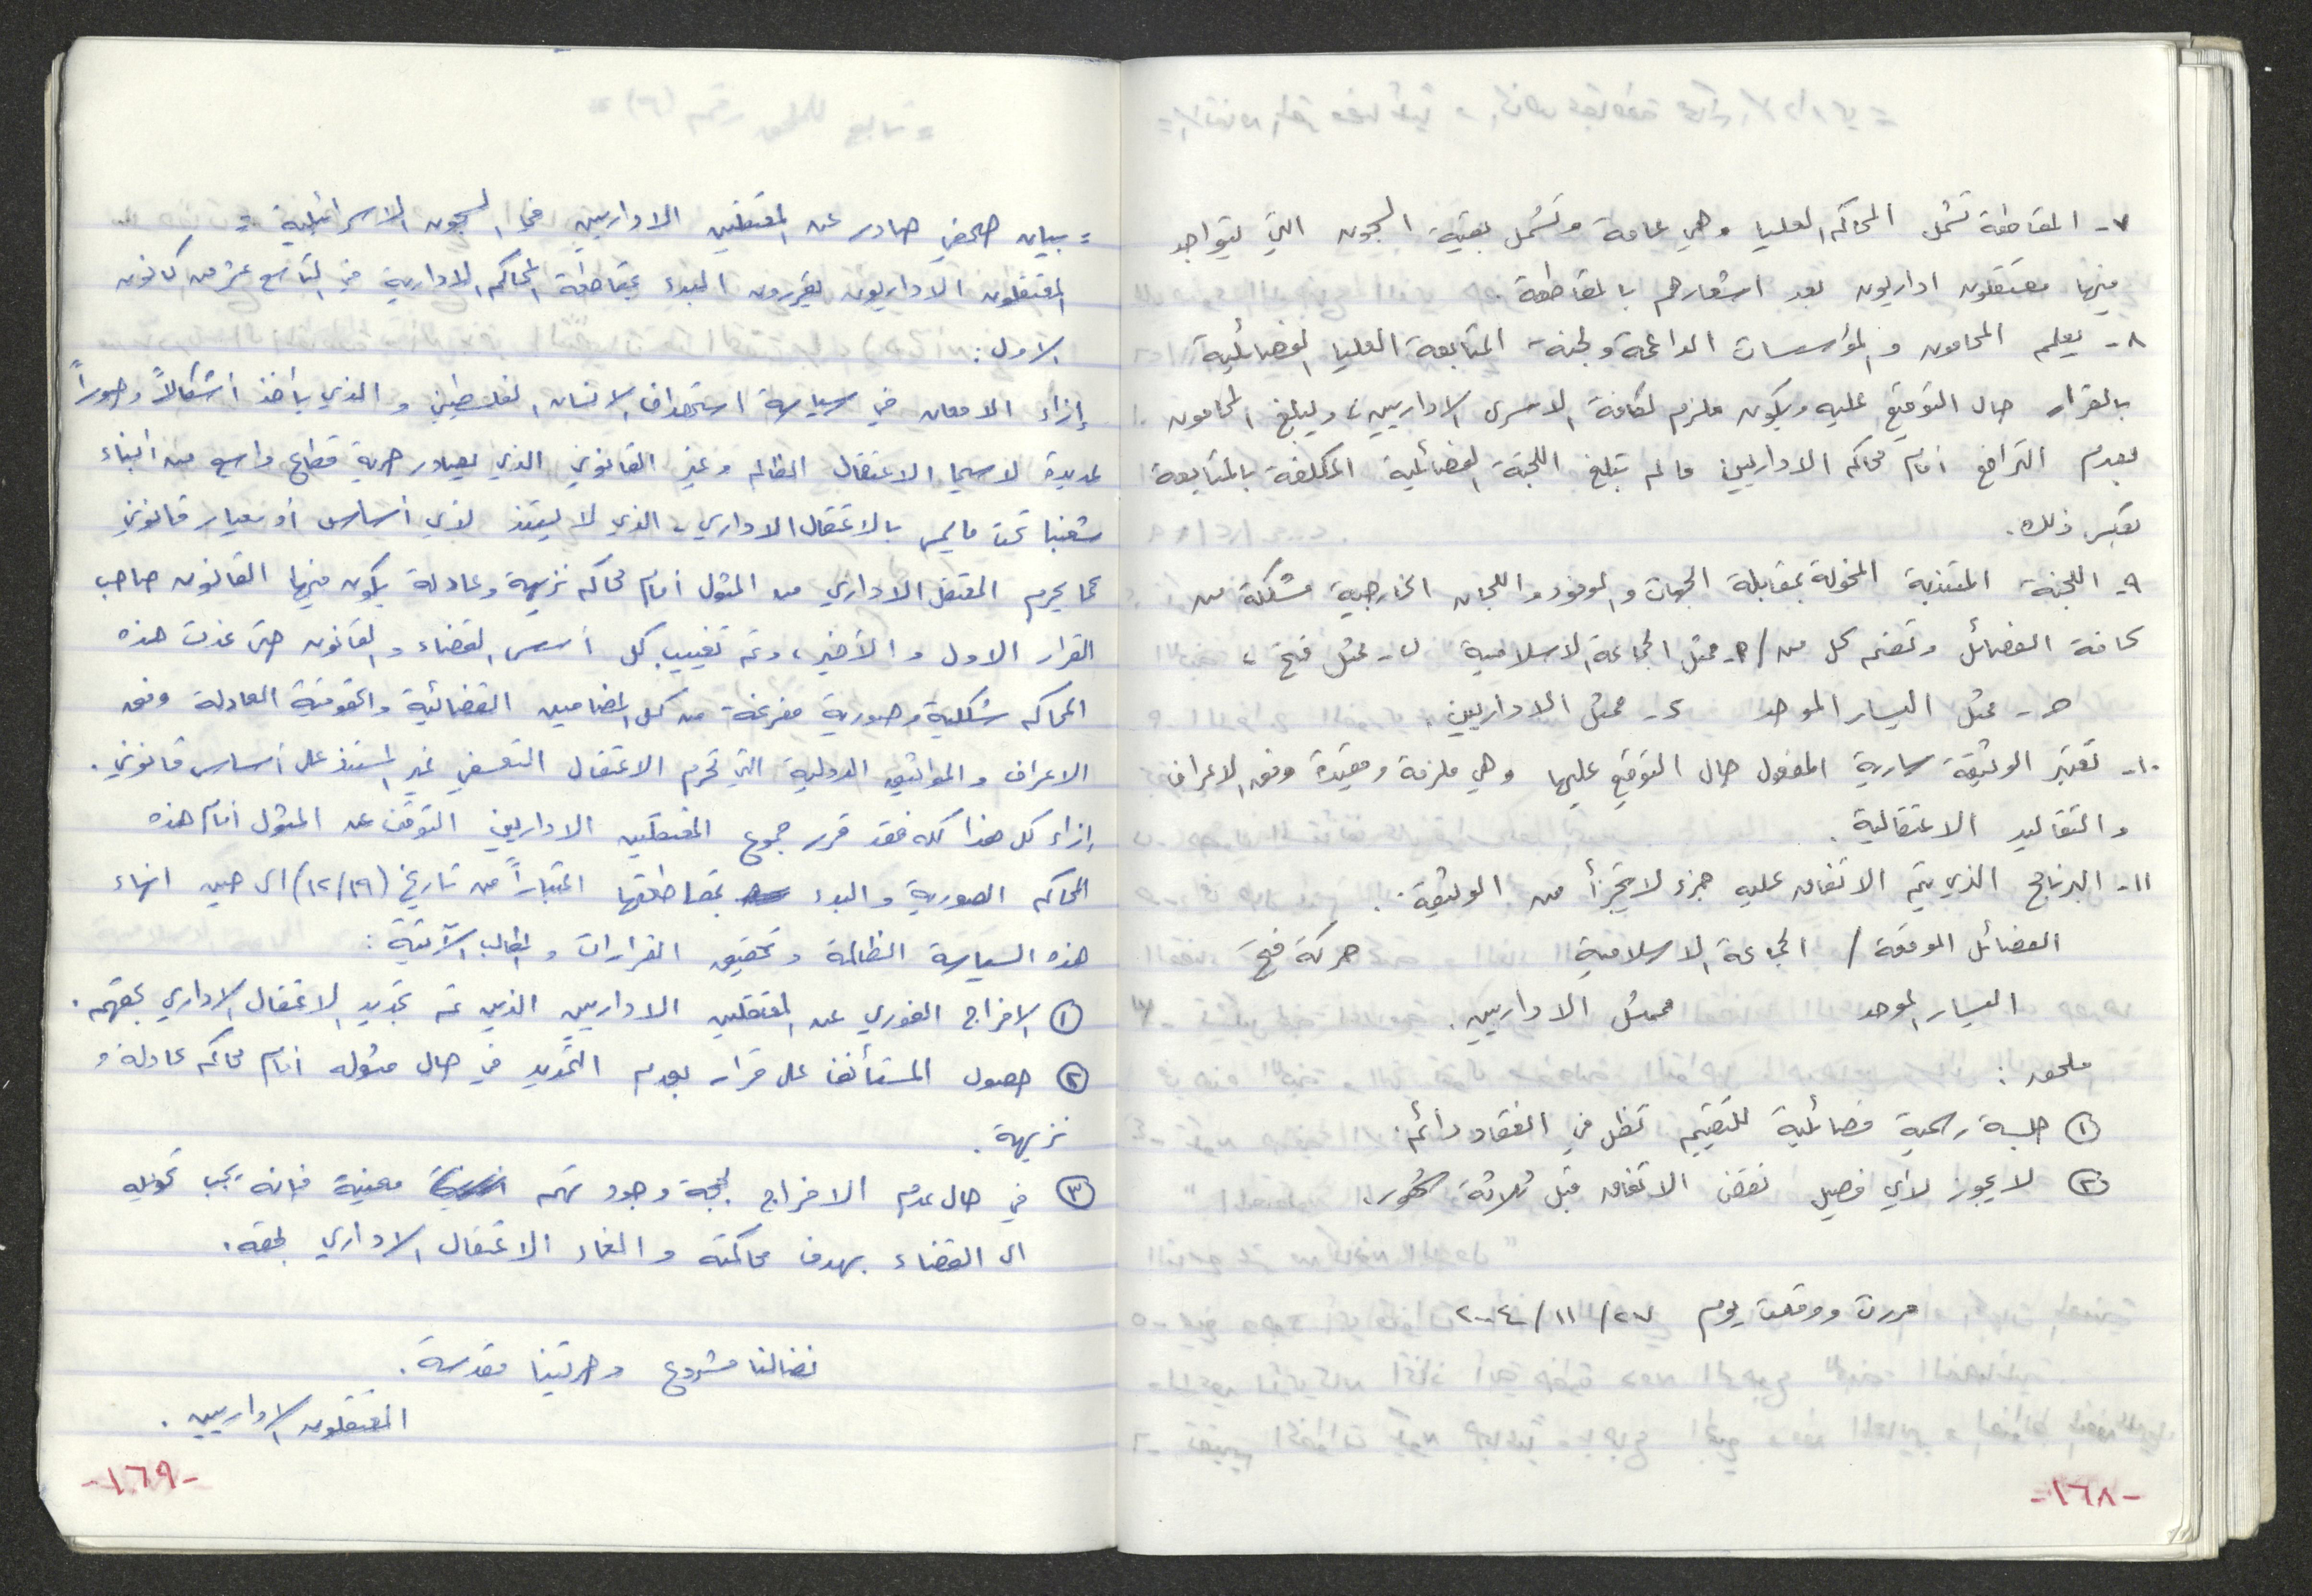 ٧- المقاطعة تشمل المحاكم العليا وهي عامة وتشمل بقية السجون التي يتواجد
فيها معتقلون اداريون بعد اشعارهم بالمقاطعة.
٨- يعلم المحامون والمؤسسات الداعمة ولجنة المتابعة العليا الفصائلية
بالقرار حال التوقيع عليه ويكون ملزم لكافة الاسرى الاداريين، ويبلغ المحامون
بعدم الترافع أمام محاكم الاداريين ما لم تبلغ اللجنة الفصائلية المكلفة بالمتابعة
بغير ذلك.
٩- اللجنة المنتدبة المخولة بمقابلة الجهات والوفود واللجان الخارجية مشكلة من
كافة الفصائل وتضم كل من/ ٩- ممثل الجماعة الاسلامية ب- ممثل فتح،
ح- ممثل اليسار الموحد د- ممثل الاداريين.
١٠- تعتبر الوثيقة سارية المفعول حال التوقيع عليها وهي ملزمة ومقيدة وفق الاعراف
والتقاليد الاعتقالية.
١١- البرنامج الذي يتم الاتفاق عليه جزء لا يتجزأ من الوثيقة.
الفصائل الموقعة/ الجماعة الاسلامية حركة فتح
اليسار الموحد ممثل الاداريين.
ملحق:
① جلسة رسمية فصائلية للتقييم تظل في انعقاد دائم.
② لا يجوز لاي فصيل نقض الاتفاق قبل ثلاثة شهور.
حررت ووقعت يوم ٢٧/ ١١/ ٢٠٠٤
-١٦٨-
= بيان صحفي صادر عن المعتقلين الاداريين في السجون الاسرائيلية =
المعتقلون الاداريون يقررون البدء بمقاطعة المحاكم الادارية في التاسع عشر من كانون
الاول:
إزاء الامعان في سياسة استهداف الانسان الفلسطيني والذي يأخذ أشكالاً وصوراً
عديدة لاسيما الاعتقال الظالم وغير القانوني الذي يصادر حرية قطاع واسع من ابناء
شعبنا تحت ما يسمى بالاعتقال الاداري، الذي لا يستند لاي أساس أو معيار قانوني
مما يحرم المعتقل الاداري من المثول أمام محاكم نزيهة وعادلة يكون فيها القانون صاحب
القرار الاول والأخير، وتم تغييب كل أسس القضاء والقانون حتى غدت هذه
المحاكم شكلية وصورية مفرغة من كل المضامين القضائية والحقوقية العادلة وفق
الاعراف والمواثيق الدولية التي تحرم الاعتقال التعسفي غير المستند على أساس قانوني.
إزاء كل هذا كله فقد قرر جموع المعتقلين الاداريين التوقف عن المثول أمام هذه
المحاكم الصورية والبدء بمقاطعتها اعتباراً من تاريخ (١٢/١٩) الى حين انهاء
هذه السياسة الظالمة وتحقيق القرارات والمطالب الآتية:
① الافراج الفوري عن المعتقلين الاداريين الذين تم تجديد الاعتقال الاداري بحقهم.
② حصول المستأنف على قرار بعدم التمديد في حال مثوله أمام محاكم عادلة و
نزيهة.
③ في حال عدم الافراج بحجة وجود تهم معينة فإنه يجب تحويله
الى القضاء بهدف محاكمته والغاء الاعتقال الاداري بحقه.
نضالنا مشروع وحريتنا مقدسة.
المعتقلون الاداريين.
-١٦٩-